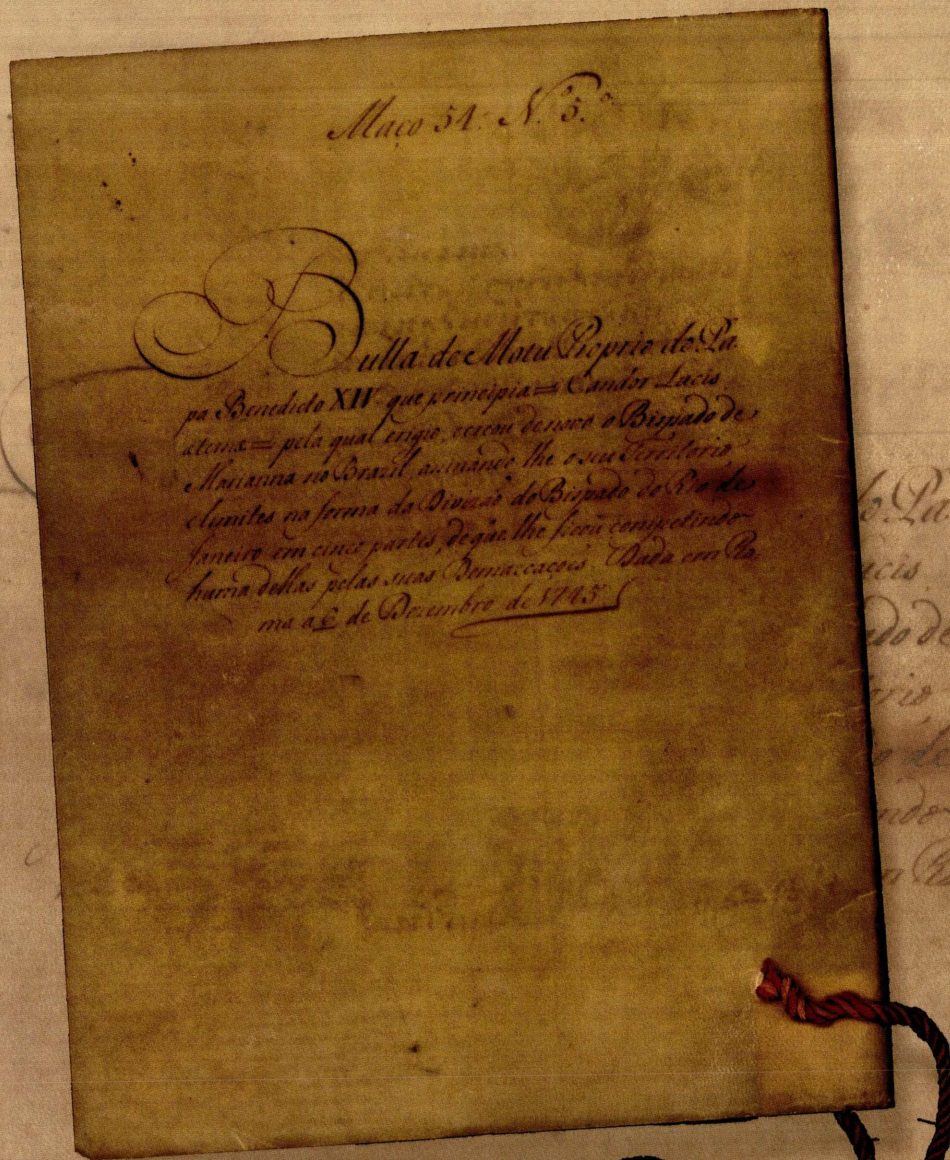 Maço 54. N.º 5.º
Bulla de Motu Proprio do Pa
pa Benedicto XIV que principia = Candor Lucis
æternæ = pela qual erigio, e creou de novo o Bispado de
Marianna no Brazil, asinando lhe o seu Territorio
e limites na forma da Divizão do Bispado do Rio de
Janeiro em cinco partes, de que lhe ficou competindo
huma dellas pelas suas Demarcaçoes. Dada em Ro
ma a 6 de Dezembro de 1745